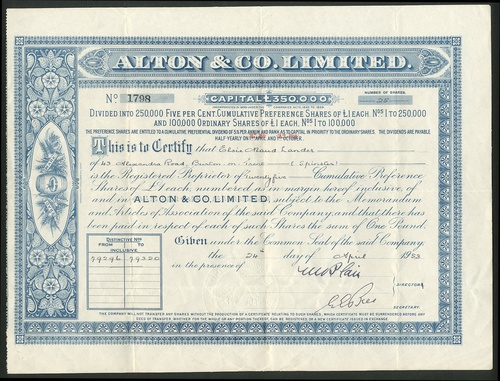 ALTON & CO. LIMITED.
No 1798
CAPITAL £350,000
NUMBER OF SHARES.
25
DIVIDED INTO 250,000 FIVE PER CENT. CUMULATIVE PREFERENCE SHARES OF £1 EACH, Nos 1 TO 250,000
AND 100,000 ORDINARY SHARES OF £1 EACH, Nos 1 TO 100,000
THE PREFERENCE SHARES ARE ENTITLED TO A CUMULATIVE PREFERENTIAL DIVIDEND OF 5% PER ANNUM AND RANK AS TO CAPITAL IN PRIORITY TO THE ORDINARY SHARES. THE DIVIDENDS ARE PAYABLE
HALF-YEARLY ON 1 AND 1 OCTOBER.
This is to Certify that Elsie Maud Lander
of 43 Alexandra Road, Burton-on-Trent (Spinster)
is the Registered Proprietor of Twentyfive Cumulative Preference
Shares of £1 each, numbered as in margin hereof inclusive, of
and in ALTON & CO. LIMITED, subject to the Memorandum
and Articles of Association of the said Company; and that there has
been paid in respect of each of such Shares the sum of One Pound.
Given under the Common Seal of the said Company,
the 24 day of April 1953
in the presence of
DIRECTOR
SECRETARY
DISTINCTIVE Nos
FROM TO
INCLUSIVE.
79296 79320
THE COMPANY WILL NOT TRANSFER ANY SHARES WITHOUT THE PRODUCTION OF A CERTIFICATE RELATING TO SUCH SHARES, WHICH CERTIFICATE MUST BE SURRENDERED BEFORE ANY
DEED OF TRANSFER, WHETHER FOR THE WHOLE OR ANY PORTION THEREOF, CAN BE REGISTERED OR A NEW CERTIFICATE ISSUED IN EXCHANGE.